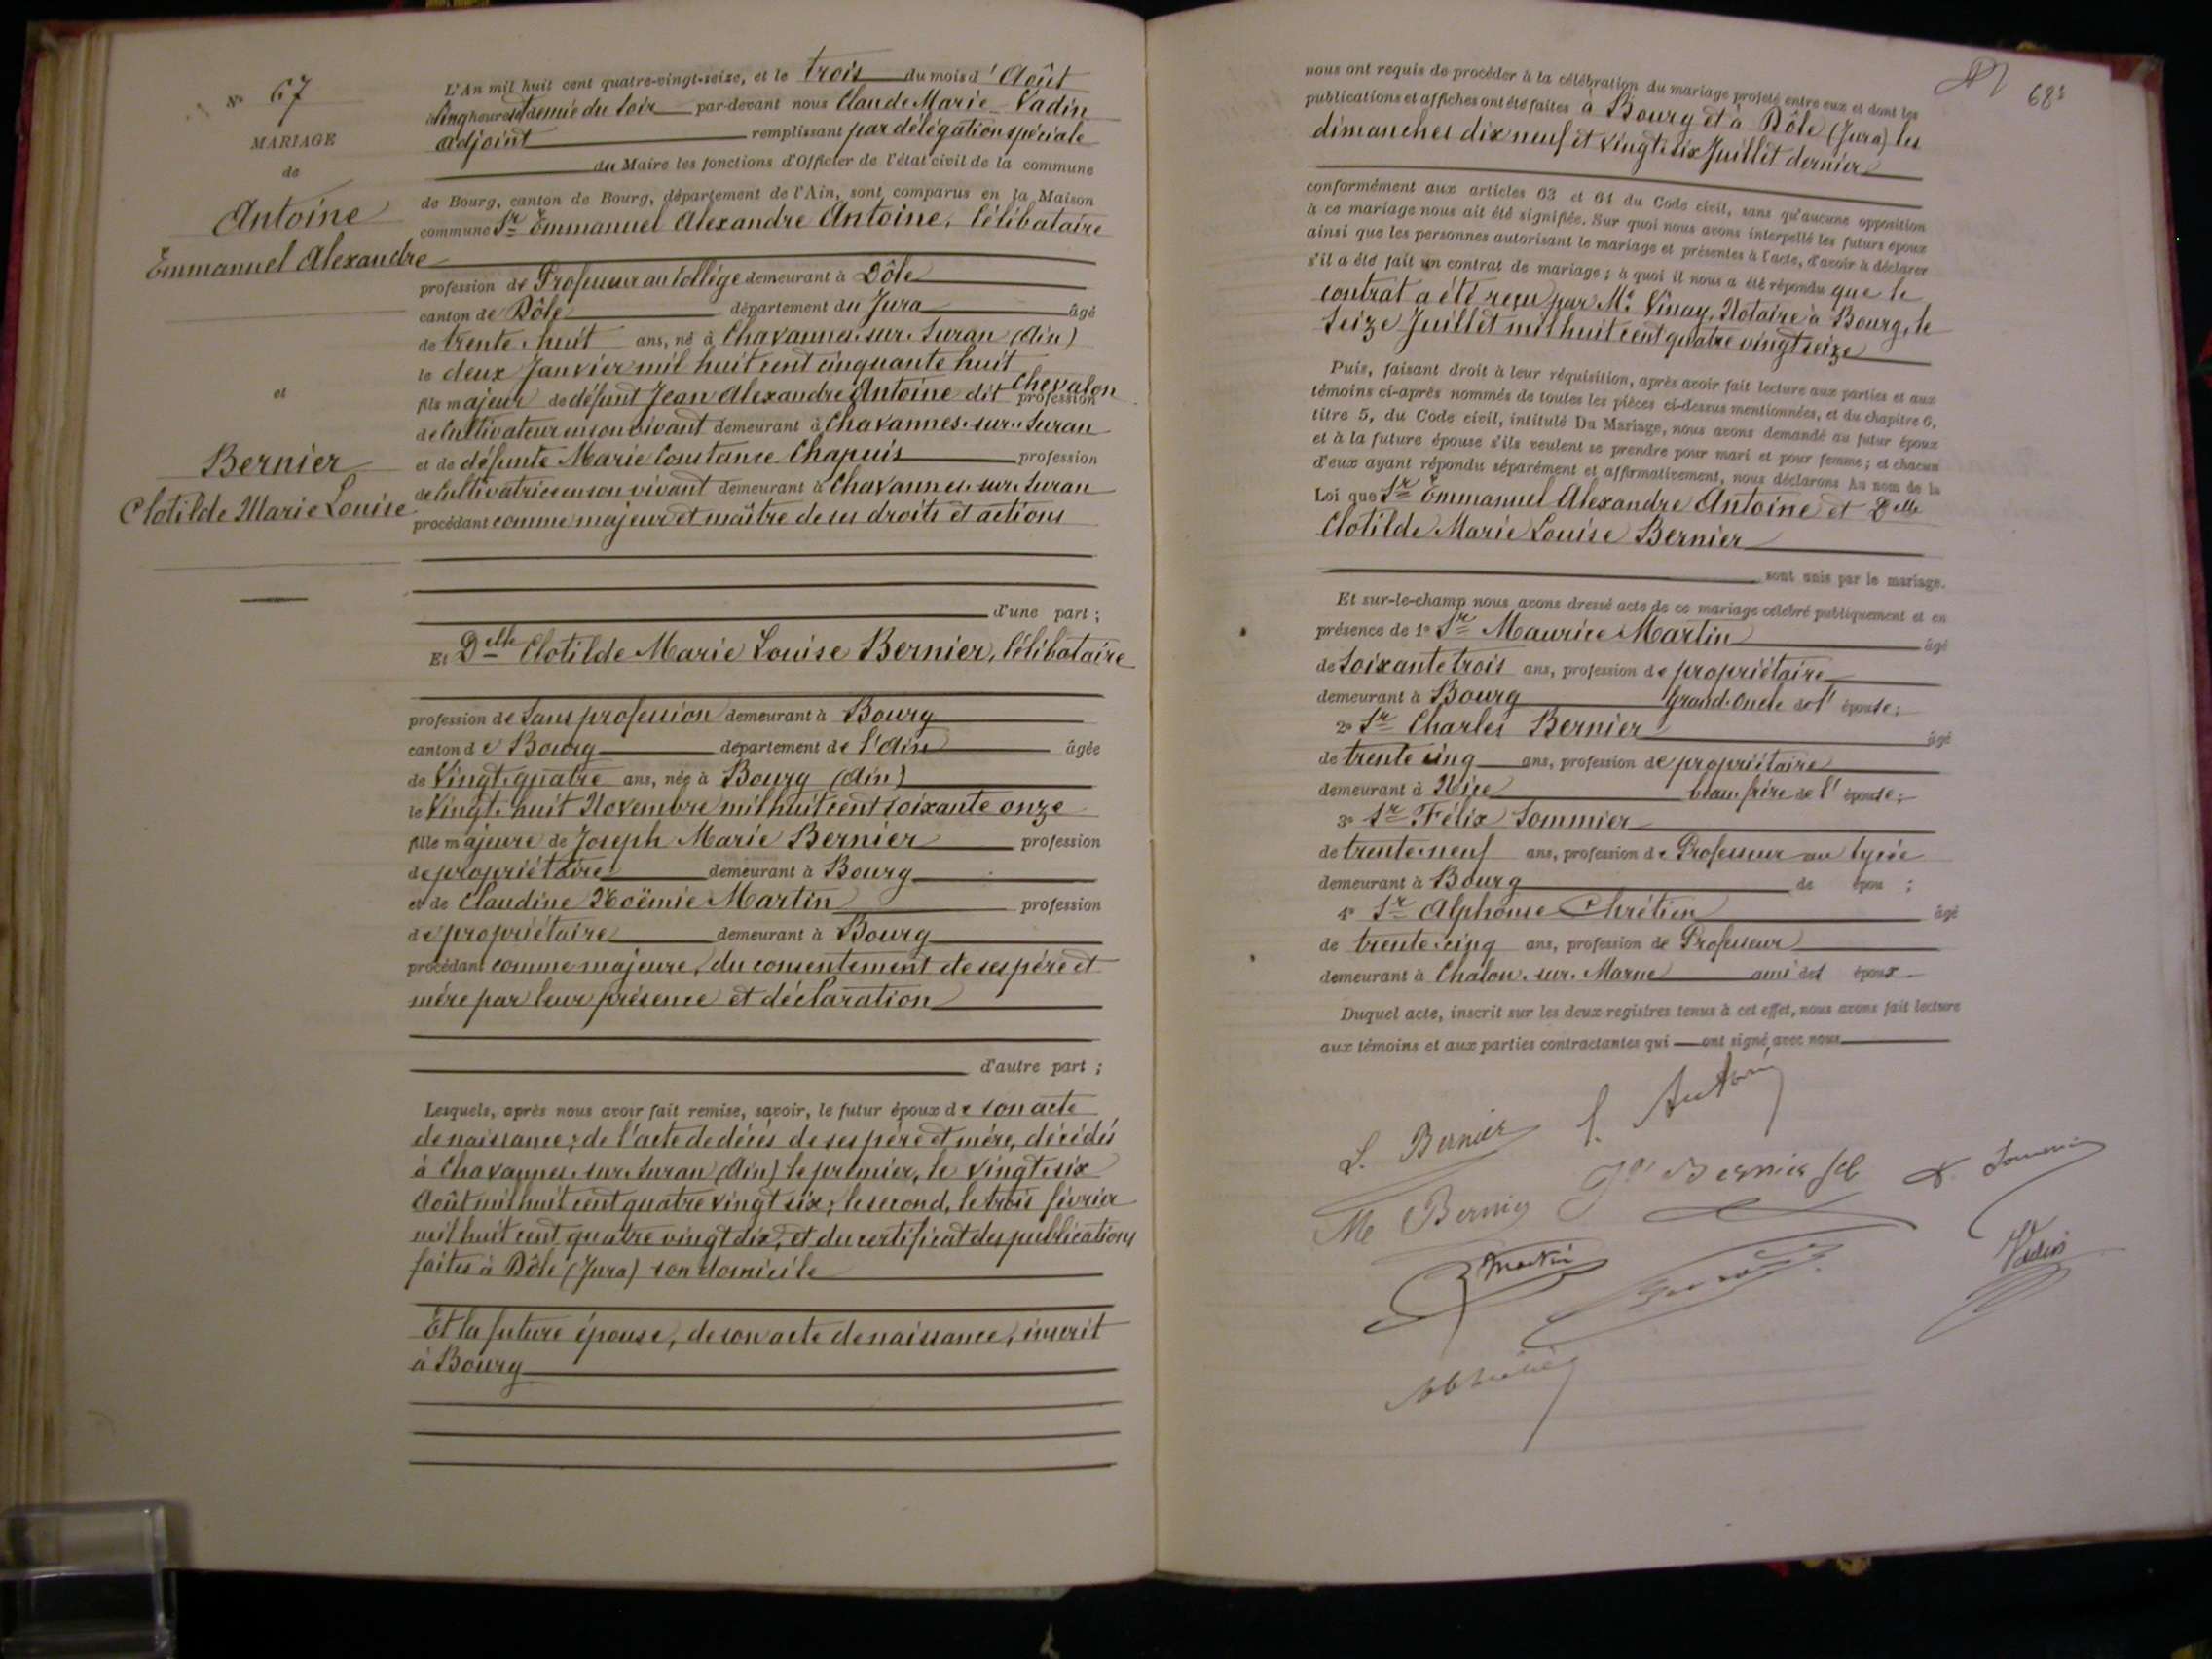 N° 67
MARIAGE
de
Antoine
Emmanuel Alexandre
et
Bernier
Clotilde Marie Louise
L'An mil huit cent quatre-vingt-seize, et le trois du mois d'Août
à cinq heures et demie du soir par-devant nous Claude Marie Vadin
adjoint remplissant par délégation spéciale
du Maire les fonctions d'Officier de l'état civil de la commune
de Bourg, canton de Bourg, département de l'Ain, sont comparus en la Maison
commune Sr Emmanuel Alexandre Antoine, Célibataire
profession de Professeur au Collège demeurant à Dôle
canton de Dôle département du Jura âgé
de trente huit ans, né à Chavannes sur Suran (Ain)
le deux Janvier mil huit cent cinquante huit
fils majeur de défunt Jean Alexandre Antoine dit Chevalon profession
de Cultivateur en son vivant demeurant à Chavannes sur Suran
et de défunte Marie Constance Chapuis profession
de Cultivatrice en son vivant demeurant à Chavannes sur Suran
procédant comme majeur et maître de ses droits et actions
d'une part ;
Et Delle Clotilde Marie Louise Bernier, Célibataire
profession de Sans profession demeurant à Bourg
canton de Bourg département de l'Ain âgée
de Vingt quatre ans, née à Bourg (Ain)
le Vingt huit Novembre mil huit cent soixante onze
fille majeure de Joseph Marie Bernier profession
de propriétaire demeurant à Bourg
et de Claudine Noëmie Martin profession
de propriétaire demeurant à Bourg
procédant comme majeure, du consentement de ses père et
mère par leur présence et déclaration
d'autre part ;
Lesquels, après nous avoir fait remise, savoir, le futur époux de son acte
de naissance ; de l'acte de décès de ses père et mère, décédés
à Chavannes sur Suran (Ain) le premier, le vingt six
Août mil huit cent quatre vingt six ; le second, le trois février
mil huit cent quatre vingt dix, et du certificat des publications
faites à Dôle (Jura) son domicile
Et la future épouse, de son acte de naissance, inscrit
à Bourg
68
nous ont requis de procéder à la célébration du mariage projeté entre eux et dont les
publications et affiches ont été faites à Bourg et à Dôle (Jura) les
dimanches dix neuf et vingt six Juillet dernier
conformément aux articles 63 et 64 du Code civil, sans qu'aucune opposition
à ce mariage nous ait été signifiée. Sur quoi nous avons interpellé les futurs époux
ainsi que les personnes autorisant le mariage et présentes à l'acte, d'avoir à déclarer
s'il a été fait un contrat de mariage ; à quoi il nous a été répondu que le
contrat a été reçu par Me Vinay, Notaire à Bourg, le
seize Juillet mil huit cent quatre vingt seize
Puis, faisant droit à leur réquisition, après avoir fait lecture aux parties et aux
témoins ci-après nommés de toutes les pièces ci-dessus mentionnées, et du chapitre 6,
titre 5, du Code civil, intitulé Du Mariage, nous avons demandé au futur époux
et à la future épouse s'ils veulent se prendre pour mari et pour femme ; et chacun
d'eux ayant répondu séparément et affirmativement, nous déclarons Au nom de la
Loi que Sr Emmanuel Alexandre Antoine et Delle
Clotilde Marie Louise Bernier
sont unis par le mariage.
Et sur-le-champ nous avons dressé acte de ce mariage célébré publiquement et en
présence de 1° Sr Maurice Martin âgé
de Soixante trois ans, profession de propriétaire
demeurant à Bourg Grand-Oncle de l'épouse ;
2° Sr Charles Bernier âgé
de trente cinq ans, profession de propriétaire
demeurant à Nice beau frère de l'épouse ;
3° Sr Félix Sommier
de trente neuf ans, profession de Professeur au lycée
demeurant à Bourg de épou ;
4° Sr Alphonse Chrétien âgé
de trente cinq ans, profession de Professeur
demeurant à Chalon sur Marne ami des époux
Duquel acte, inscrit sur les deux registres tenus à cet effet, nous avons fait lecture
aux témoins et aux parties contractantes qui ont signé avec nous
L. Bernier
Antoine
M Bernier
Bernier
Martin
Vadin